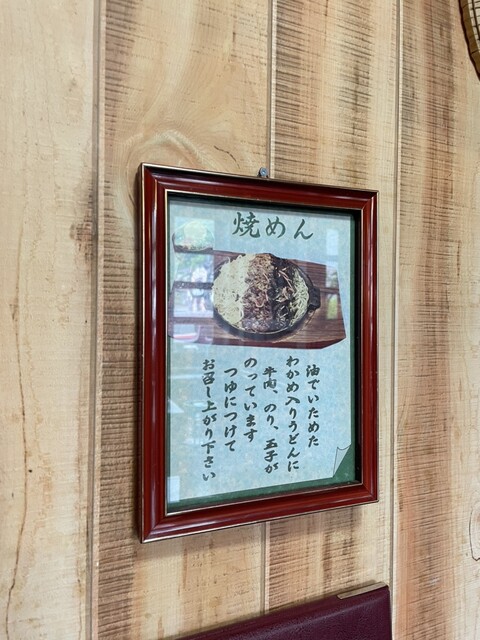 焼めん
油でいためた
わかめ入りうどんに
牛肉、のり、玉子が
のっています
つゆにつけて
お召し上がり下さい